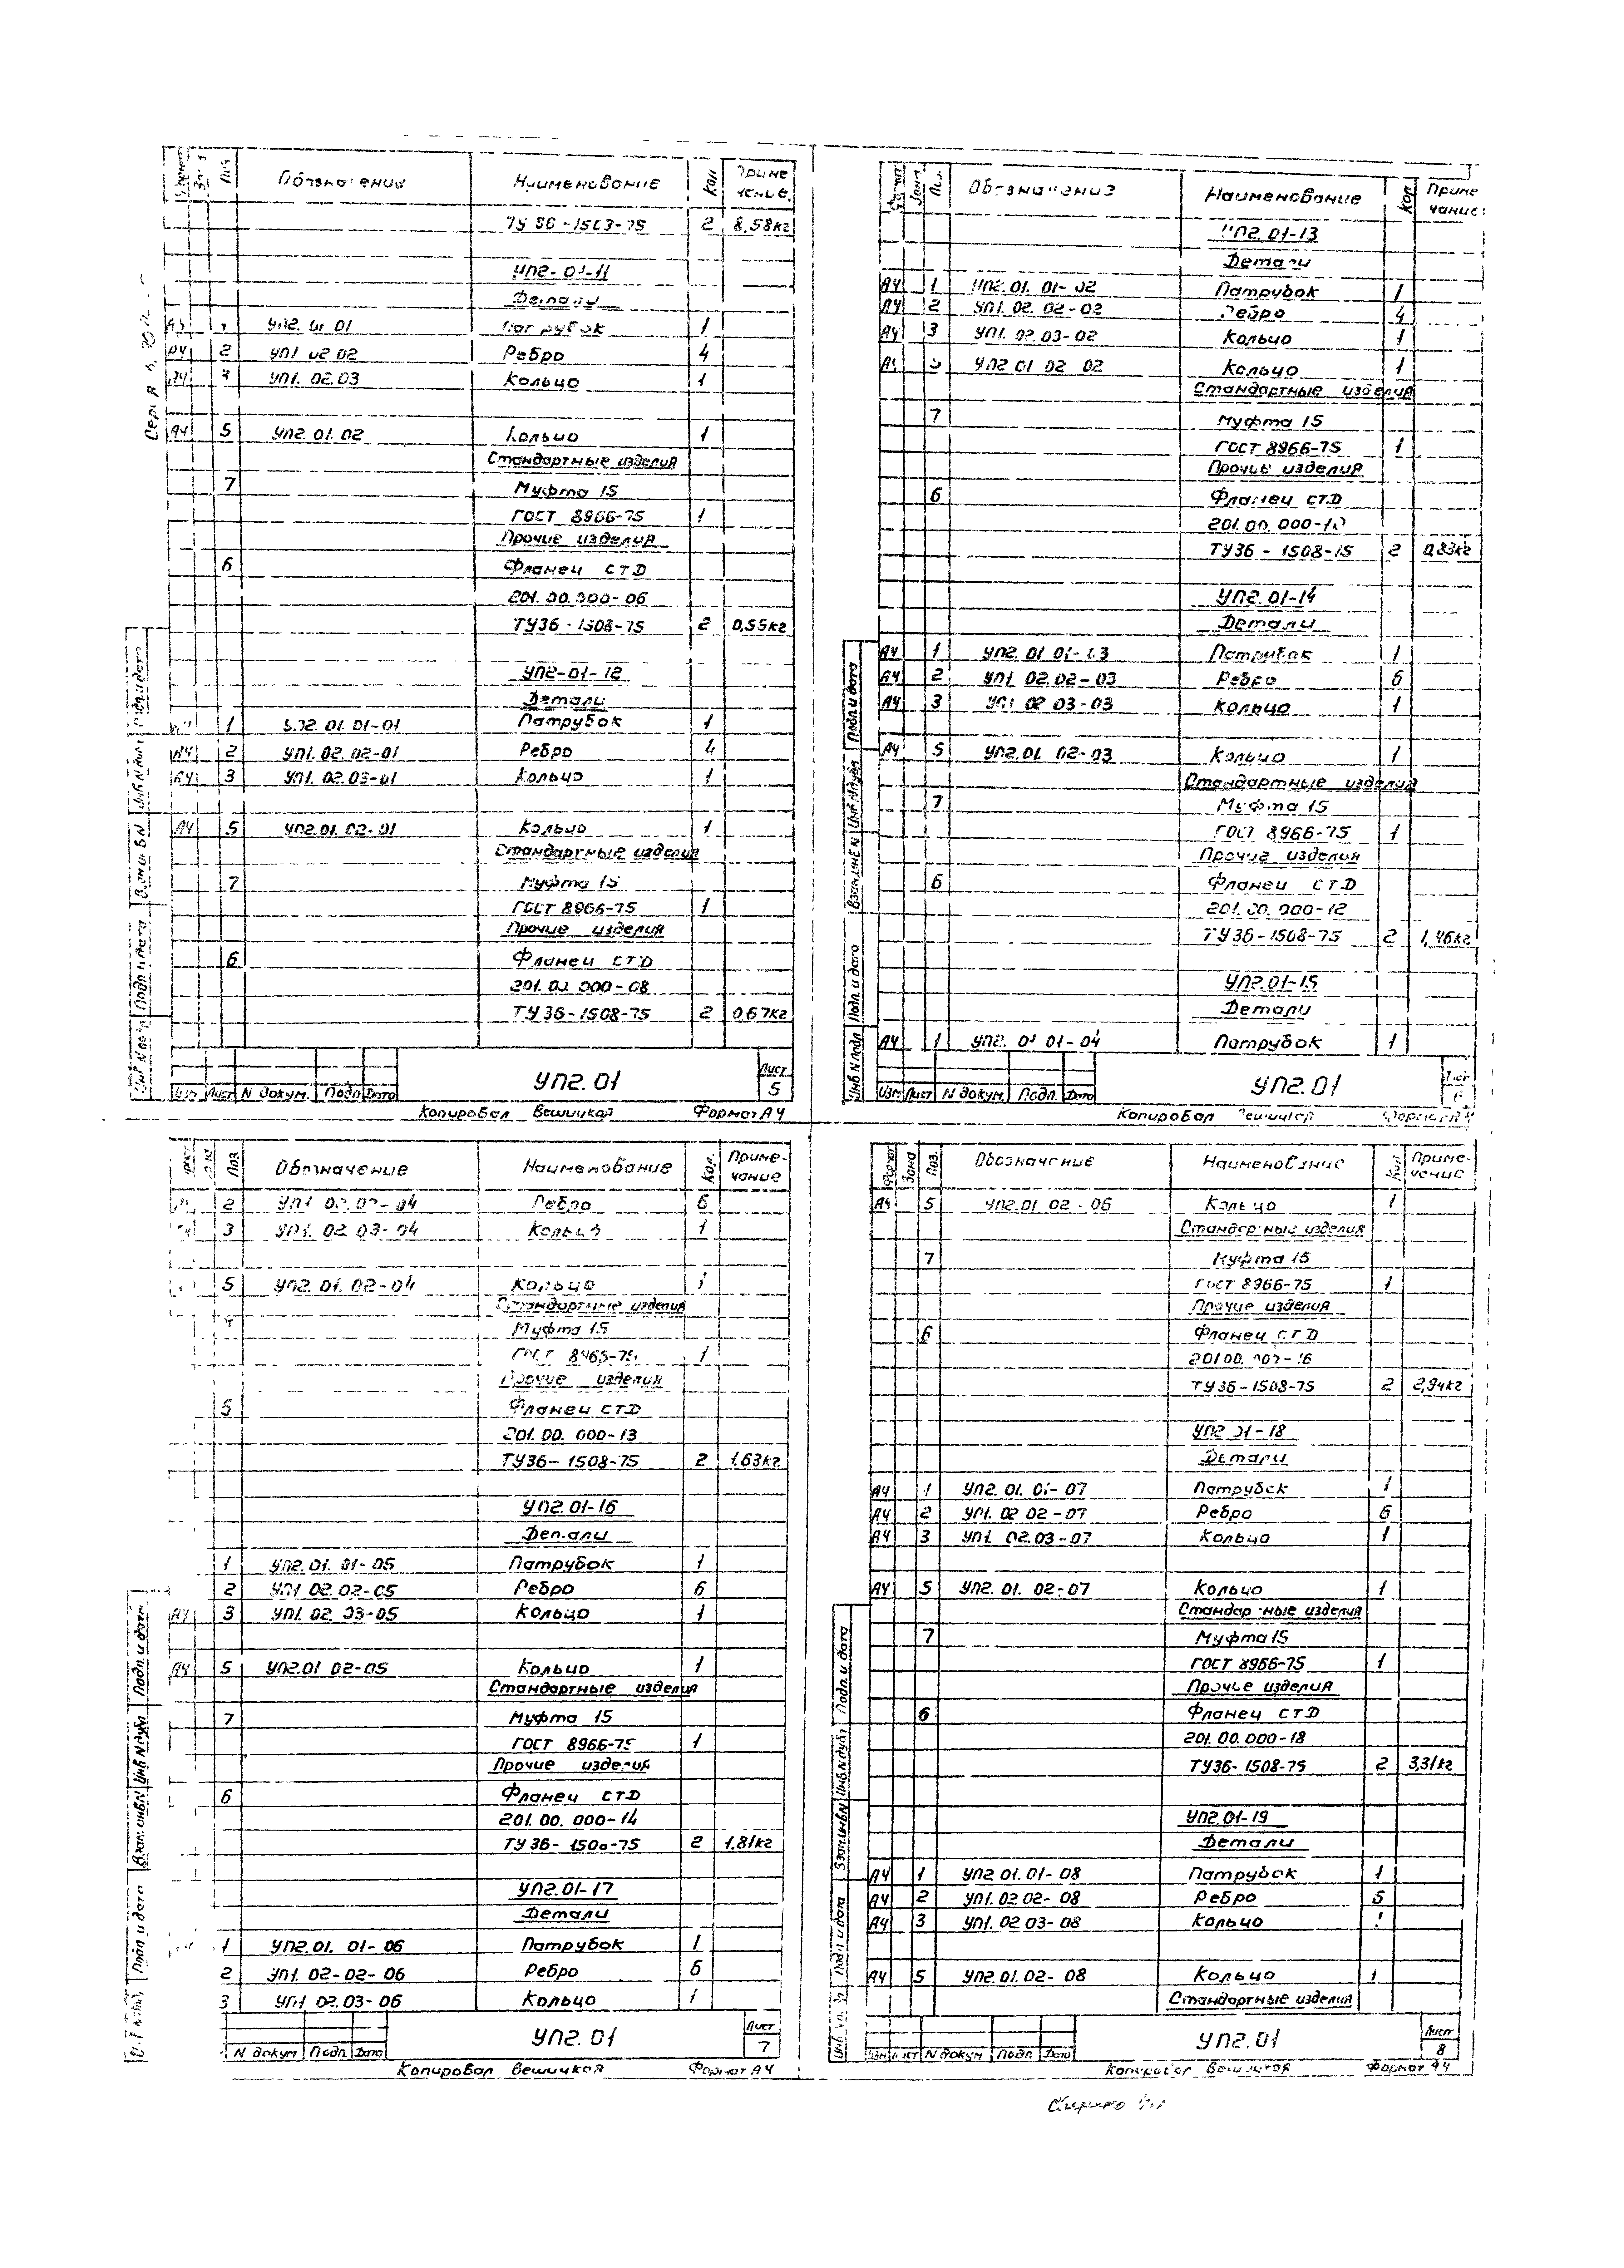 Обозначение Наименование Кол Приме чение.
ТУ 36-1503-75 2 8,58кг
УП2-01-11
Детали
УП2. 01 01 Патрубок 1
А4 2 УП1 02 02 Ребро 4
А4 3 УП1. 02.03 Кольцо 1
А4 5 УП2. 01. 02 Кольцо 1
Стандартные изделия
7 Муфта 15
ГОСТ 8966-75 1
Прочие изделия
6 Фланец СТД
201. 00. 000-06
ТУ36-1508-75 2 0,55кг
УП2-01-12
Детали
1 УП2. 01. 01-01 Патрубок 1
А4 2 УП1. 02. 02-01 Ребро 4
А4 3 УП1. 02.03-01 Кольцо 1
А4 5 УП2.01. 02-01 Кольцо 1
Стандартные изделия
7 Муфта 15
ГОСТ 8966-75 1
Прочие изделия
6 Фланец СТД
201. 00 000-08
ТУ36-1508-75 2 0,67кг
Изм Лист N докум. Подп Дата УП2. 01 Лист 5
Копировал Вешицкая Формат А4
Подп. и дата
Взам. инв N
Подп и дата
Обозначение Наименование Кол Приме чание
УП2. 01-13
Детали
А4 1 УП2. 01. 01-02 Патрубок 1
А4 2 УП1. 02. 02-02 Ребро 4
А4 3 УП1. 02.03-02 Кольцо 1
УП2 01 02 02 Кольцо 1
Стандартные изделия
7 Муфта 15
ГОСТ 8966-75 1
Прочие изделия
6 Фланец СТД
201. 00. 000-10
ТУ36-1508-75 2 0,83кг
УП2. 01-14
Детали
А4 1 УП2. 01 01-03 Патрубок 1
А4 2 УП1 02.02-03 Ребро 6
А4 3 УП1 02 03-03 Кольцо 1
А4 5 УП2.01 02-03 Кольцо 1
Стандартные изделия
7 Муфта 15
ГОСТ 8966-75 1
Прочие изделия
6 Фланец СТД
201. 00. 000-12
ТУ36-1508-75 2 1,46кг
УП2.01-15
Детали
А4 1 УП2. 01 01-04 Патрубок 1
Изм Лист N докум Подп. Дата УП2. 01
Копировал
Подп. и дата
Инв. N дубл
Взам. инв N
Подп. и дата
Инв N подл
Поз. Обозначение Наименование Кол. Приме-чание
2 УП1 02.02-04 Ребро 6
3 УП1. 02. 03-04 Кольцо 1
5 УП2. 01. 02-04 Кольцо 1
Стандартные изделия
Муфта 15
ГОСТ 8966-75 1
Прочие изделия
Фланец СТД
201. 00. 000-13
ТУ36-1508-75 2 1,63кг
УП2. 01-16
Детали
1 УП2. 01. 01-05 Патрубок 1
2 УП1 02. 02-05 Ребро 6
А4 3 УП1. 02. 03-05 Кольцо 1
А4 5 УП2.01 02-05 Кольцо 1
Стандартные изделия
7 Муфта 15
ГОСТ 8966-75 1
Прочие изделия
6 Фланец СТД
201. 00. 000-14
ТУ36-1508-75 2 1,81кг
УП2.01-17
Детали
1 УП2.01. 01-06 Патрубок 1
2 УП1. 02-02-06 Ребро 6
3 УП1 02.03-06 Кольцо 1
N докум Подп. Дата УП2. 01 Лист 7
Копировал Вешицкая Формат А4
Подп. и дата
Инв N дубл
Взам. инв N
Подп и дата
Формат Зона Поз. Обозначение Наименование Кол Приме-чание
А4 5 УП2.01 02-06 Кольцо 1
Стандартные изделия
7 Муфта 15
ГОСТ 8966-75 1
Прочие изделия
6 Фланец СТД
201 00. 000-16
ТУ36-1508-75 2 2,94кг
УП2 01-18
Детали
А4 1 УП2. 01. 01-07 Патрубок 1
А4 2 УП1. 02 02-07 Ребро 6
А4 3 УП1 02.03-07 Кольцо 1
А4 5 УП2. 01. 02-07 Кольцо 1
Стандартные изделия
7 Муфта 15
ГОСТ 8966-75 1
Прочие изделия
6 Фланец СТД
201. 00. 000-18
ТУ36-1508-75 2 3,31кг
УП2 01-19
Детали
А4 1 УП2 01.01-08 Патрубок 1
А4 2 УП1. 02 02-08 Ребро 6
А4 3 УП1. 02 03-08 Кольцо
А4 5 УП2 01. 02-08 Кольцо 1
Стандартные изделия
N докум Подп Дата УП2. 01 Лист 8
Копировал Вешицкая Формат А4
Подп. и дата
Инв. N дубл
Взам. инв N
Подп и дата